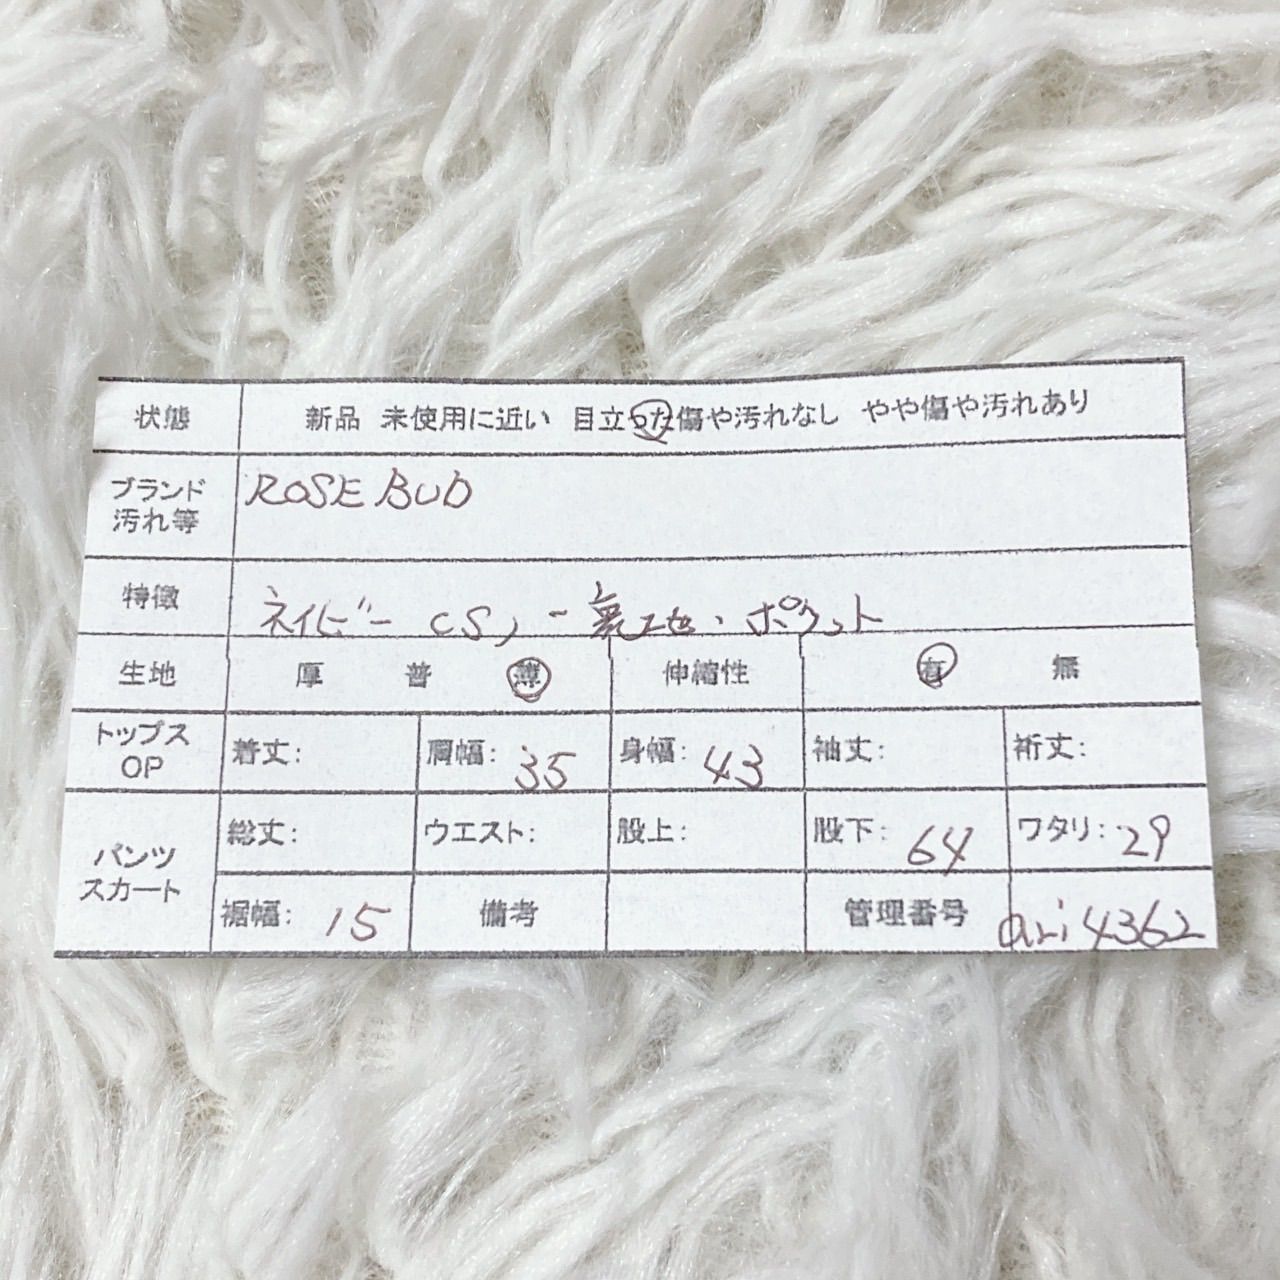 状態 新品 未使用に近い 目立った傷や汚れなし やや傷や汚れあり
ブランド ROSE BUD
汚れ等
特徴 ネイビー (S) - 裏地・ポケット
生地 厚 普 薄 伸縮性 有 無
トップス OP 着丈: 肩幅: 35 身幅: 43 袖丈: 裄丈:
パンツ スカート 総丈: ウエスト: 股上: 股下: 64 ワタリ: 29
裾幅: 15 備考 管理番号 ari4362